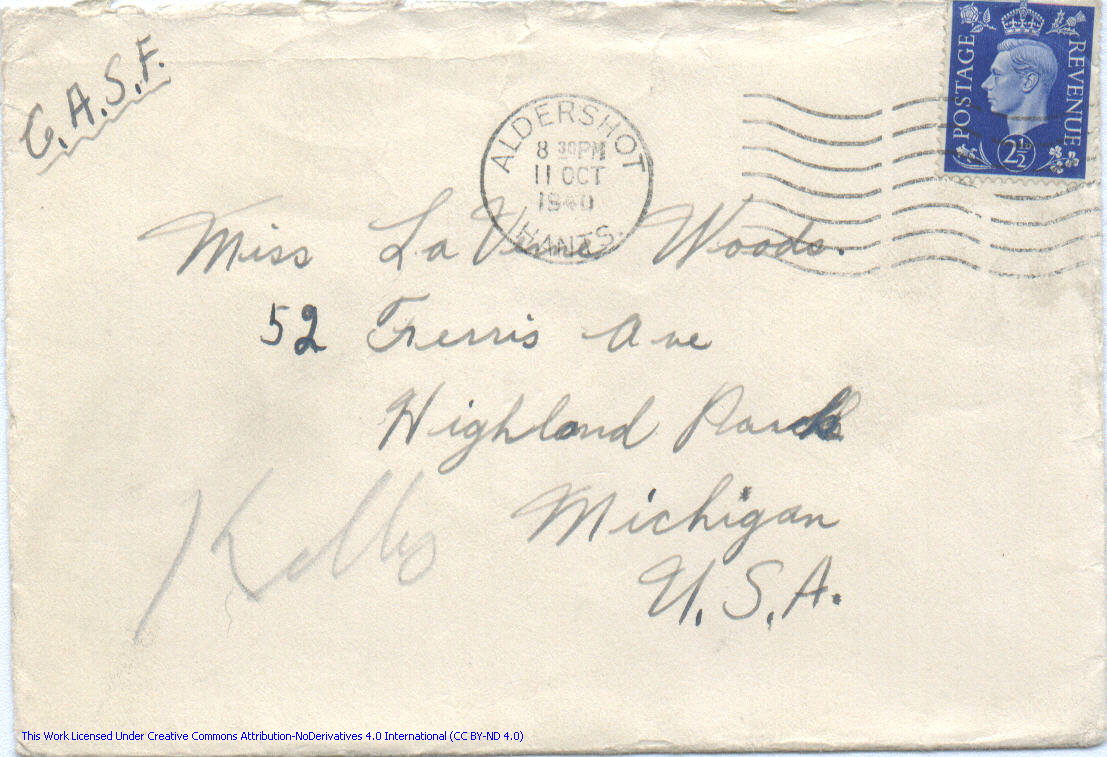 C.A.S.F.
POSTAGE
REVENUE
2½D
ALDERSHOT
8 30PM
11 OCT
1940
HANTS.
Miss La Verne Woods.
52 Ferris Ave
Highland Park
Michigan
U.S.A.
This Work Licensed Under Creative Commons Attribution-NoDerivatives 4.0 International (CC BY-ND 4.0)